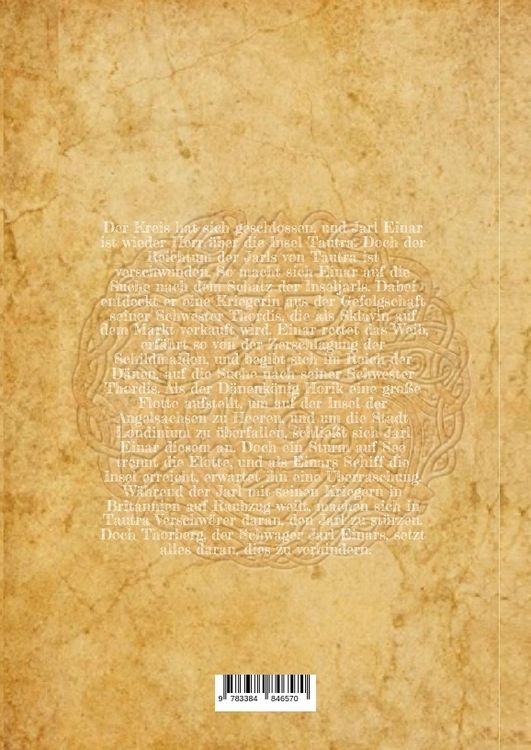 Der Kreis hat sich geschlossen, und Jarl Einar
ist wieder Herr über die Insel Tautra. Doch der
Reichtum der Jarls von Tautra ist
verschwunden. So macht sich Einar auf die
Suche nach dem Schatz der Inseljarls. Dabei
entdeckt er eine Kriegerin aus der Gefolgschaft
seiner Schwester Thordis, die als Sklavin auf
dem Markt verkauft wird. Einar rettet das Weib,
erfährt so von der Zerschlagung der
Schildmaiden, und begibt sich im Reich der
Dänen, auf die Suche nach seiner Schwester
Thordis. Als der Dänenkönig Horik eine große
Flotte aufstellt, um auf der Insel der
Angelsachsen zu Heeren, und um die Stadt
Londinium zu überfallen, schließt sich Jarl
Einar diesem an. Doch ein Sturm auf See
trennt die Flotte, und als Einars Schiff die
Insel erreicht, erwartet ihn eine Überraschung.
Während der Jarl mit seinen Kriegern in
Britannien auf Raubzug weilt, machen sich in
Tautra Verschwörer daran, den Jarl zu stürzen.
Doch Thorberg, der Schwager Jarl Einars, setzt
alles daran, dies zu verhindern.
9 783384 846570